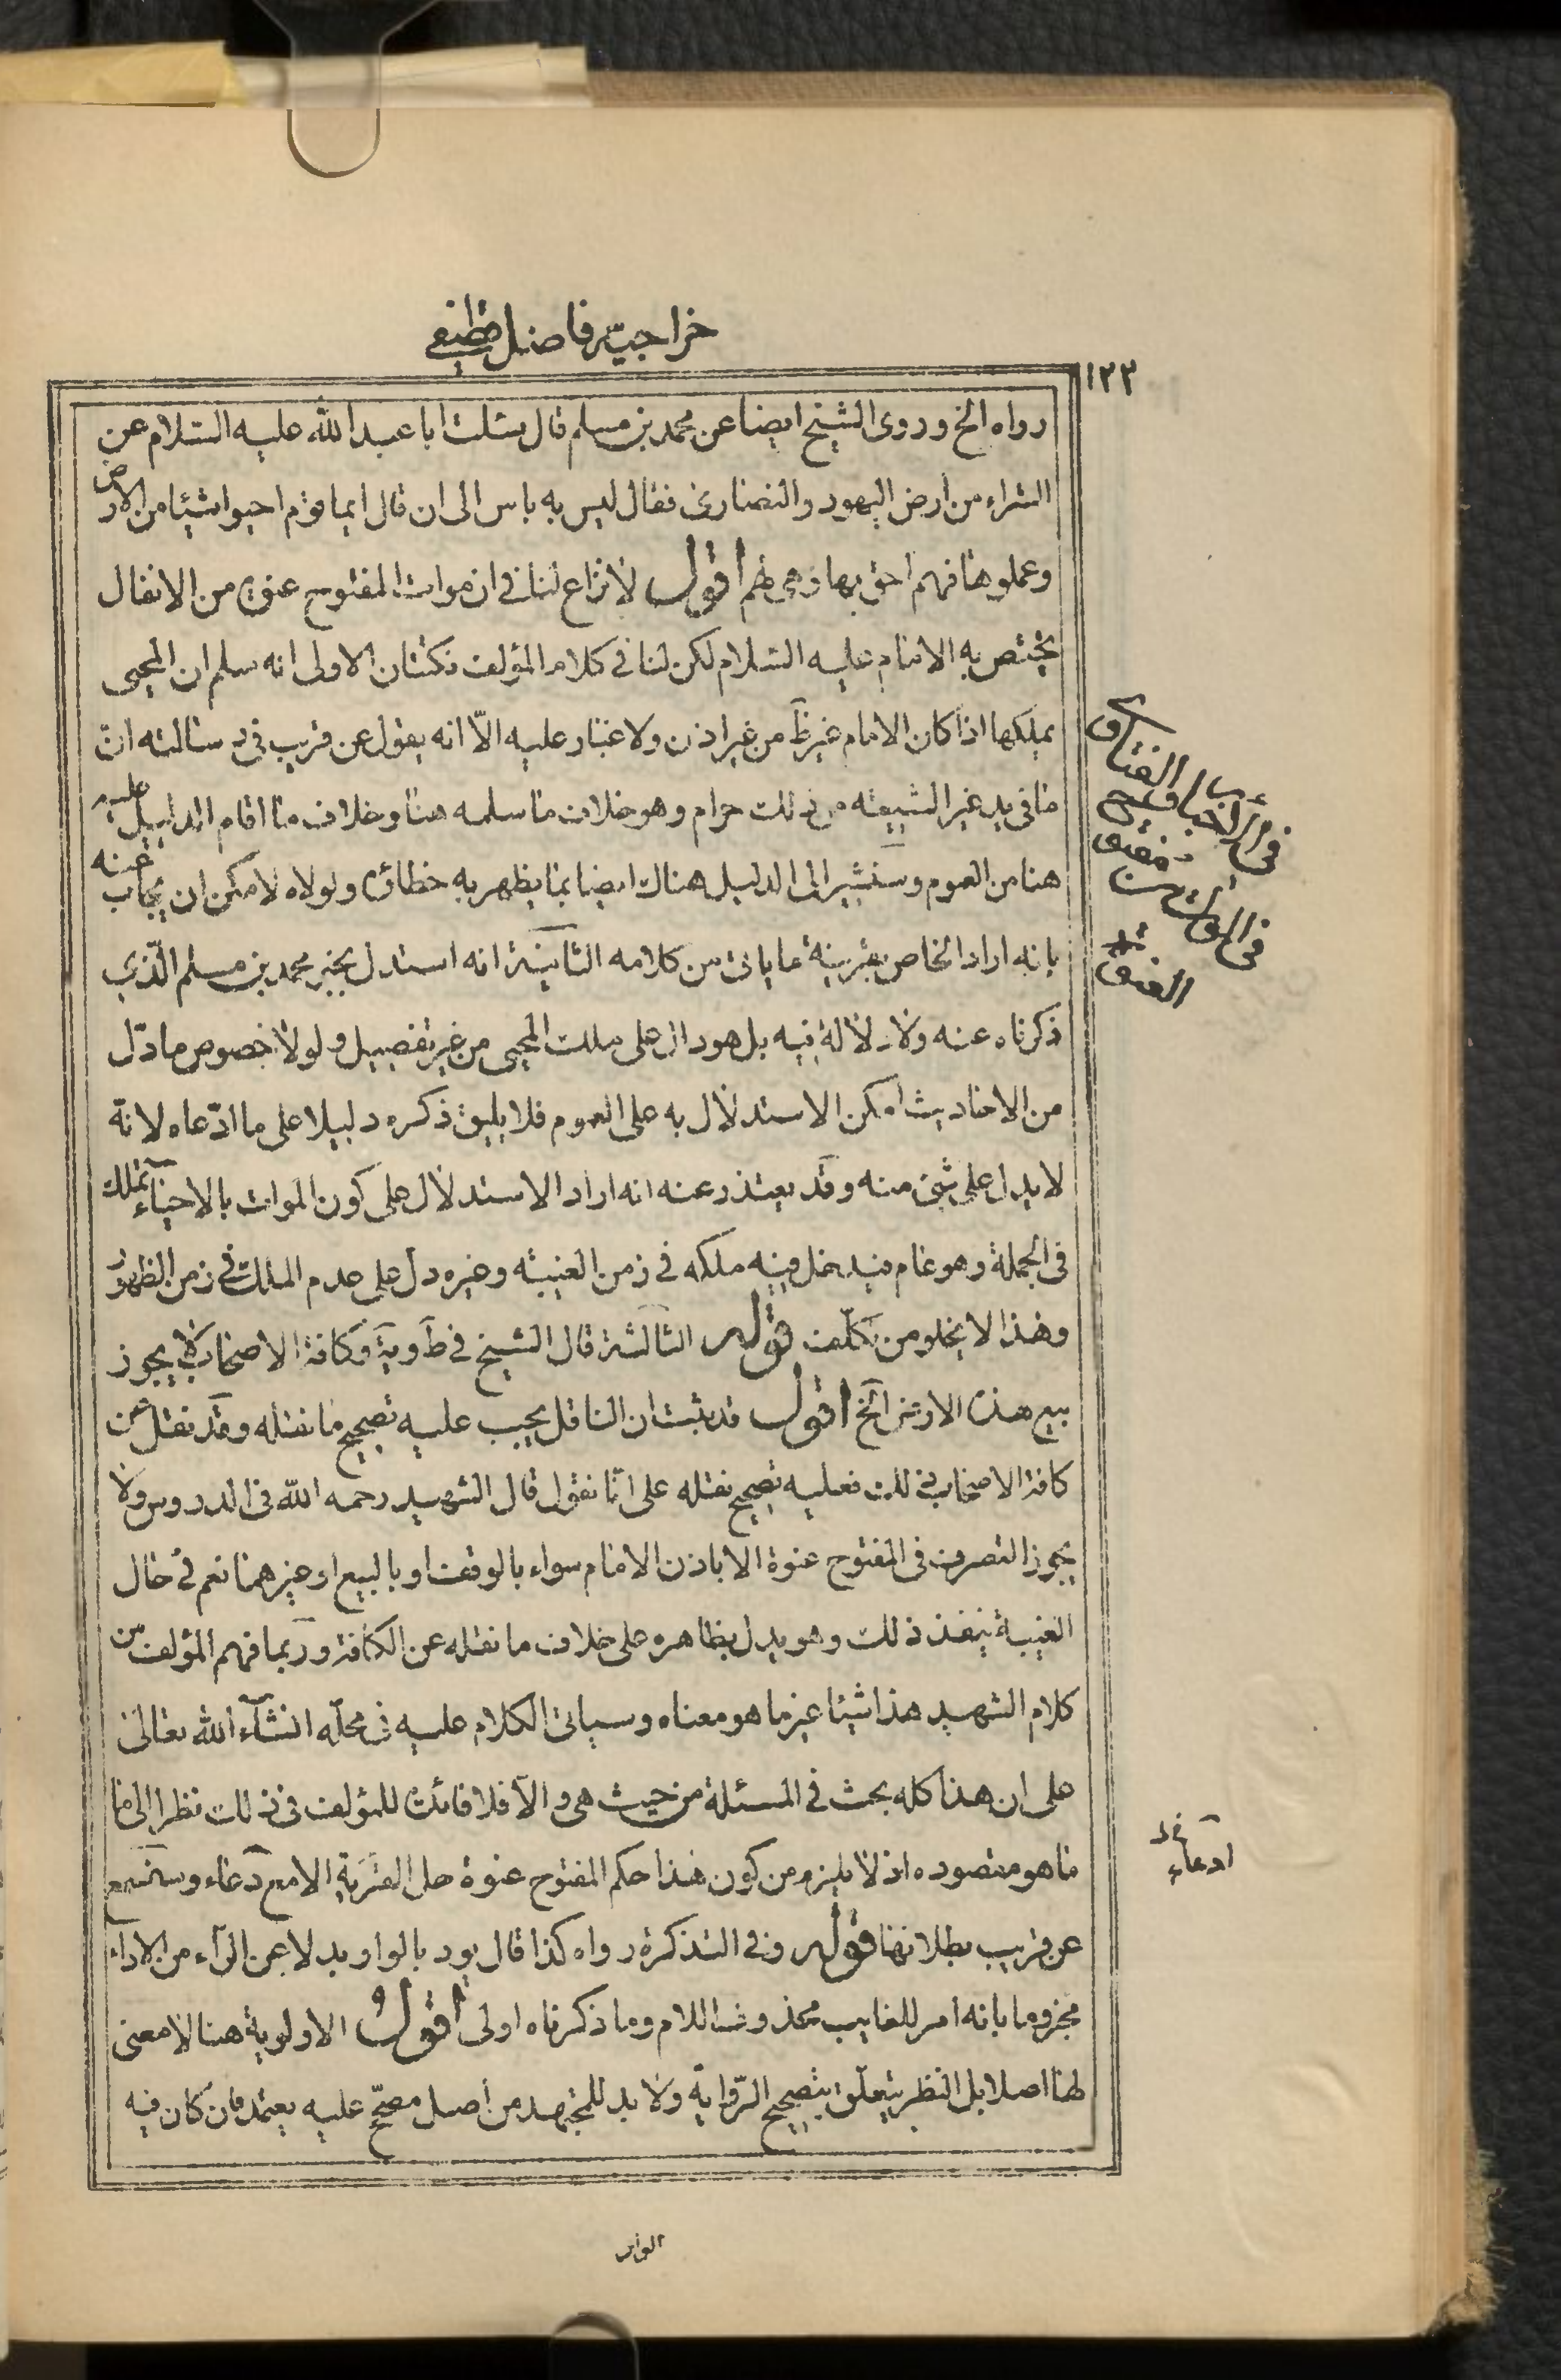 خراجيۀ فاضل قطيفى
١٢٢
رواه الخ وروى الشيخ ايضا عن محمد بن مسلم قال سئلت ابا عبد الله عليه السّلام عن
الشراء من ارض اليهود والنصارى فقال ليس به باس الى ان قال ايما قوم احيوا شيئا من الارض
وعملوها فهم احق بها وهى لهم اقول لا نزاع لنا فى ان موات المفتوح عنوة من الانفال
يختص به الامام عليه السّلام لكن لنا فى كلام المؤلف نكتتان الاولى انه سلم ان المحيى
يملكها اذا كان الامام غير ظَ من غير اذن ولا غبار عليه الّا انه يقول عن قريب فى رسالته ان
ما فى يد غير الشيعة من ذلك حرام وهو خلاف ما سلمه هنا وخلاف ما اقام الدليل عليه
هنا من العموم وسنشير الى الدليل هناك ايضا بما يظهر به خطاؤه ولولاه لامكن ان يجاب عنه
بانه اراد الخاص بقرينة ما ياتى من كلامه الثانية انه استدل بخبر محمد بن مسلم الّذى
ذكرناه عنه ولا دلالة فيه بل هو دال على ملك المحيى من غير تفصيل ولولا خصوص ما دّل
من الاحاديث امكن الاستدلال به على العموم فلا يليق ذكره دليلا على ما ادّعاه لانّه
لا يدل على شئ منه وقد يعتذر عنه انه اراد الاستدلال على كون الموات بالاحياء تملك
فى الجملة وهو عام فيدخل فيه ملكه فى زمن الغيبة وغيره دل على عدم الملك فى زمن الظهور
وهذا لا يخلو من تكلّف قوله الثالثة قال الشيخ فى طَ ويَه وكافة الاصحاب لا يجوز
بيع هذه الارض الخ اقول قد ثبت ان الناقل يجب عليه تصحيح ما نقله وقد نقل عن
كافة الاصحاب ذلك فعليه تصحيح نقله على انّا نقول قال الشهيد رحمه الله فى الدروس ولا
يجوز التصرف فى المفتوح عنوة الا باذن الامام سواء بالوقف او بالبيع او غيرهما نعم فى حال
الغيبة ينفذ ذلك وهو يدل بظاهره على خلاف ما نقله عن الكافة وربما فهم المؤلف من
كلام الشهيد هذا شيئا غير ما هو معناه وسياتى الكلام عليه فى محلّه انشآء الله تعالى
على ان هذا كله بحث فى المسئلة من حيث هى والّا فلا فائدة للمؤلف فى ذلك نظرا الى ما
ما هو مقصوده اذ لا يلزم من كون هذا حكم المفتوح عنوة حل القرية الا مع دعاء وستسمع
عن قريب بطلانها قوله وفى التذكرة رواه كذا قال يود بالواو بدلا عن الرآء من الاداء
مجزوما بانه امر للغايب محذوف اللام وما ذكرناه اولى اقول الاولوية هنا لا معنى
لها اصلا بل النظر يتعلّق بتصحيح الرّواية ولا بد للمجتهد من اصل مصحّح عليه يعتمد فان كان فيه
ادعاء